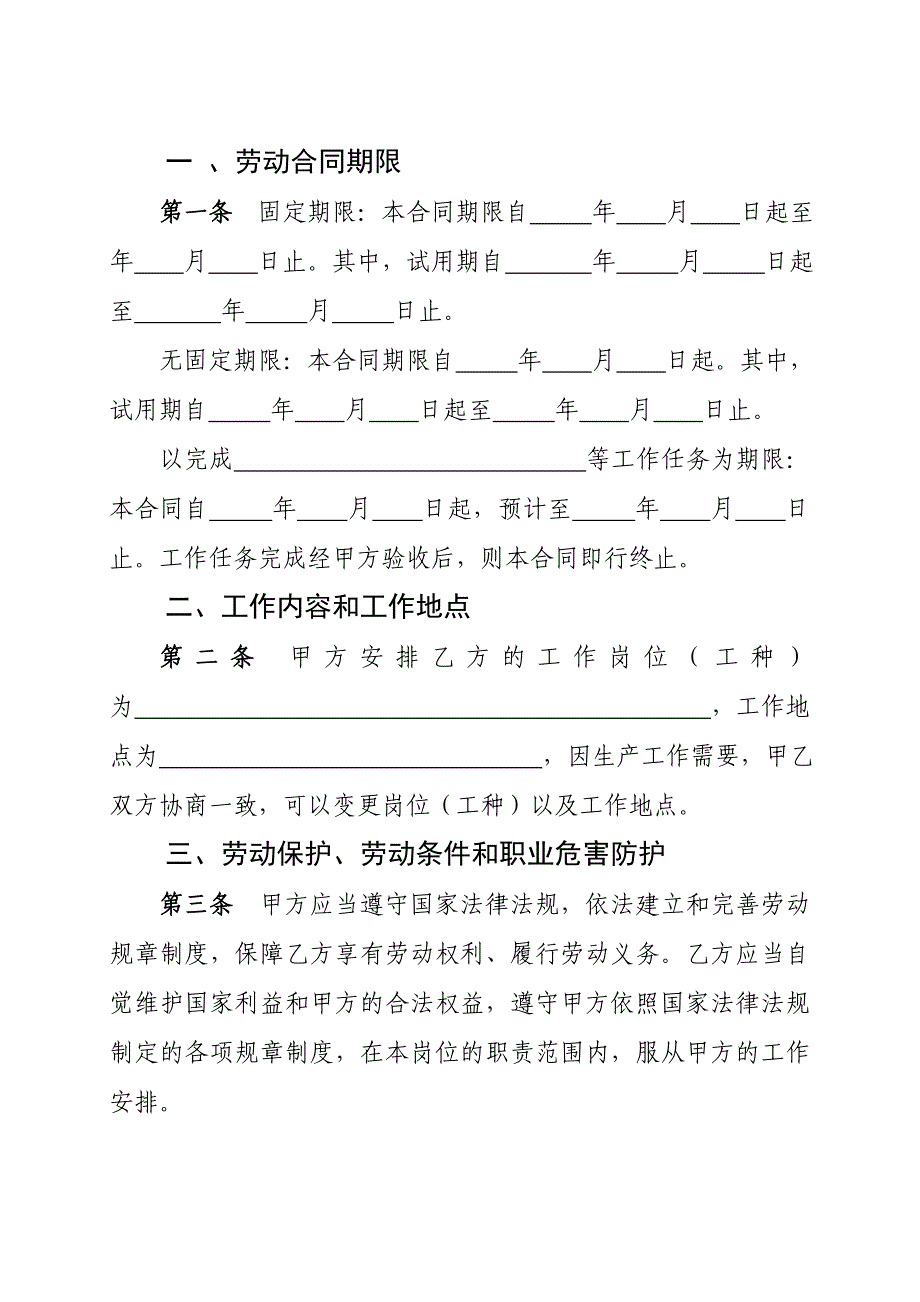 一 、劳动合同期限
第一条 固定期限：本合同期限自_____年____月____日起至
年____月____日止。其中，试用期自_______年_____月_____日起
至_______年_____月_____日止。
无固定期限：本合同期限自_____年____月____日起。其中，
试用期自_____年____月____日起至_____年____月____日止。
以完成_____________________________等工作任务为期限：
本合同自_____年____月____日起，预计至_____年____月____日
止。工作任务完成经甲方验收后，则本合同即行终止。
二、工作内容和工作地点
第二条 甲方安排乙方的工作岗位（工种）
为_______________________________________________，工作地
点为_______________________________，因生产工作需要，甲乙
双方协商一致，可以变更岗位（工种）以及工作地点。
三、劳动保护、劳动条件和职业危害防护
第三条 甲方应当遵守国家法律法规，依法建立和完善劳动
规章制度，保障乙方享有劳动权利、履行劳动义务。乙方应当自
觉维护国家利益和甲方的合法权益，遵守甲方依照国家法律法规
制定的各项规章制度，在本岗位的职责范围内，服从甲方的工作
安排。